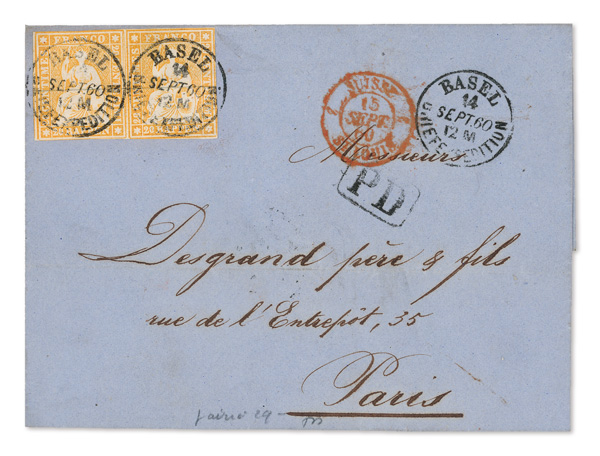 FRANCO FRANCO
BASEL
14
SEPT.60
12 M
BRIEFEXPEDITION
BASEL
14
SEPT.60
12 M
BRIEFEXPEDITION
SUISSE
15
SEPT.
60
BASEL
14
SEPT.60
12 M
BRIEFEXPEDITION
Messieurs
PD
Desgrand père & fils
rue de l'Entrepôt, 35
Paris